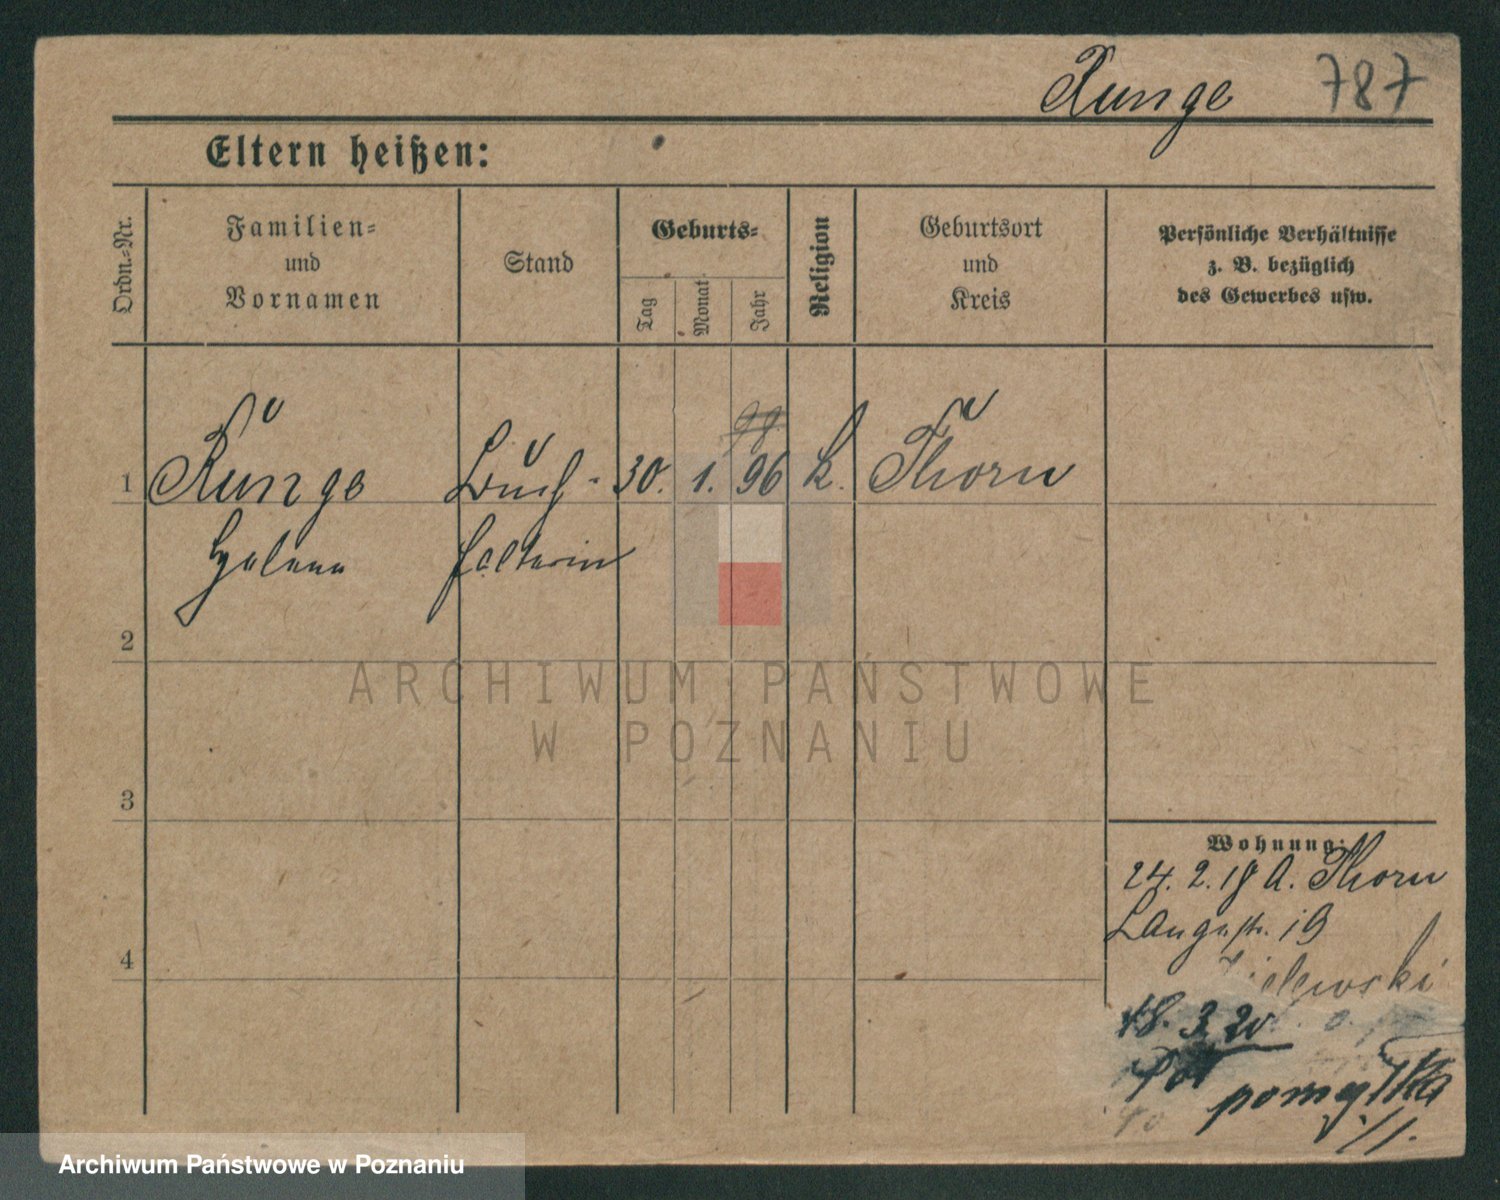 Runge 787
Eltern heißen:
Ordn.-Nr.
Familien-
und
Vornamen
Stand
Geburts-
Tag
Monat
Jahr
Religion
Geburtsort
und
Kreis
Persönliche Verhältnisse
z. B. bezüglich
des Gewerbes usw.
1 Runge Buch- 30. 1. 96 k. Thorn
Helena halterin
2
3
4
ARCHIWUM PAŃSTWOWE
W POZNANIU
Wohnung:
24. 2. 19 A. Thorn
19
18. 3. 20
pomyłka
Archiwum Państwowe w Poznaniu